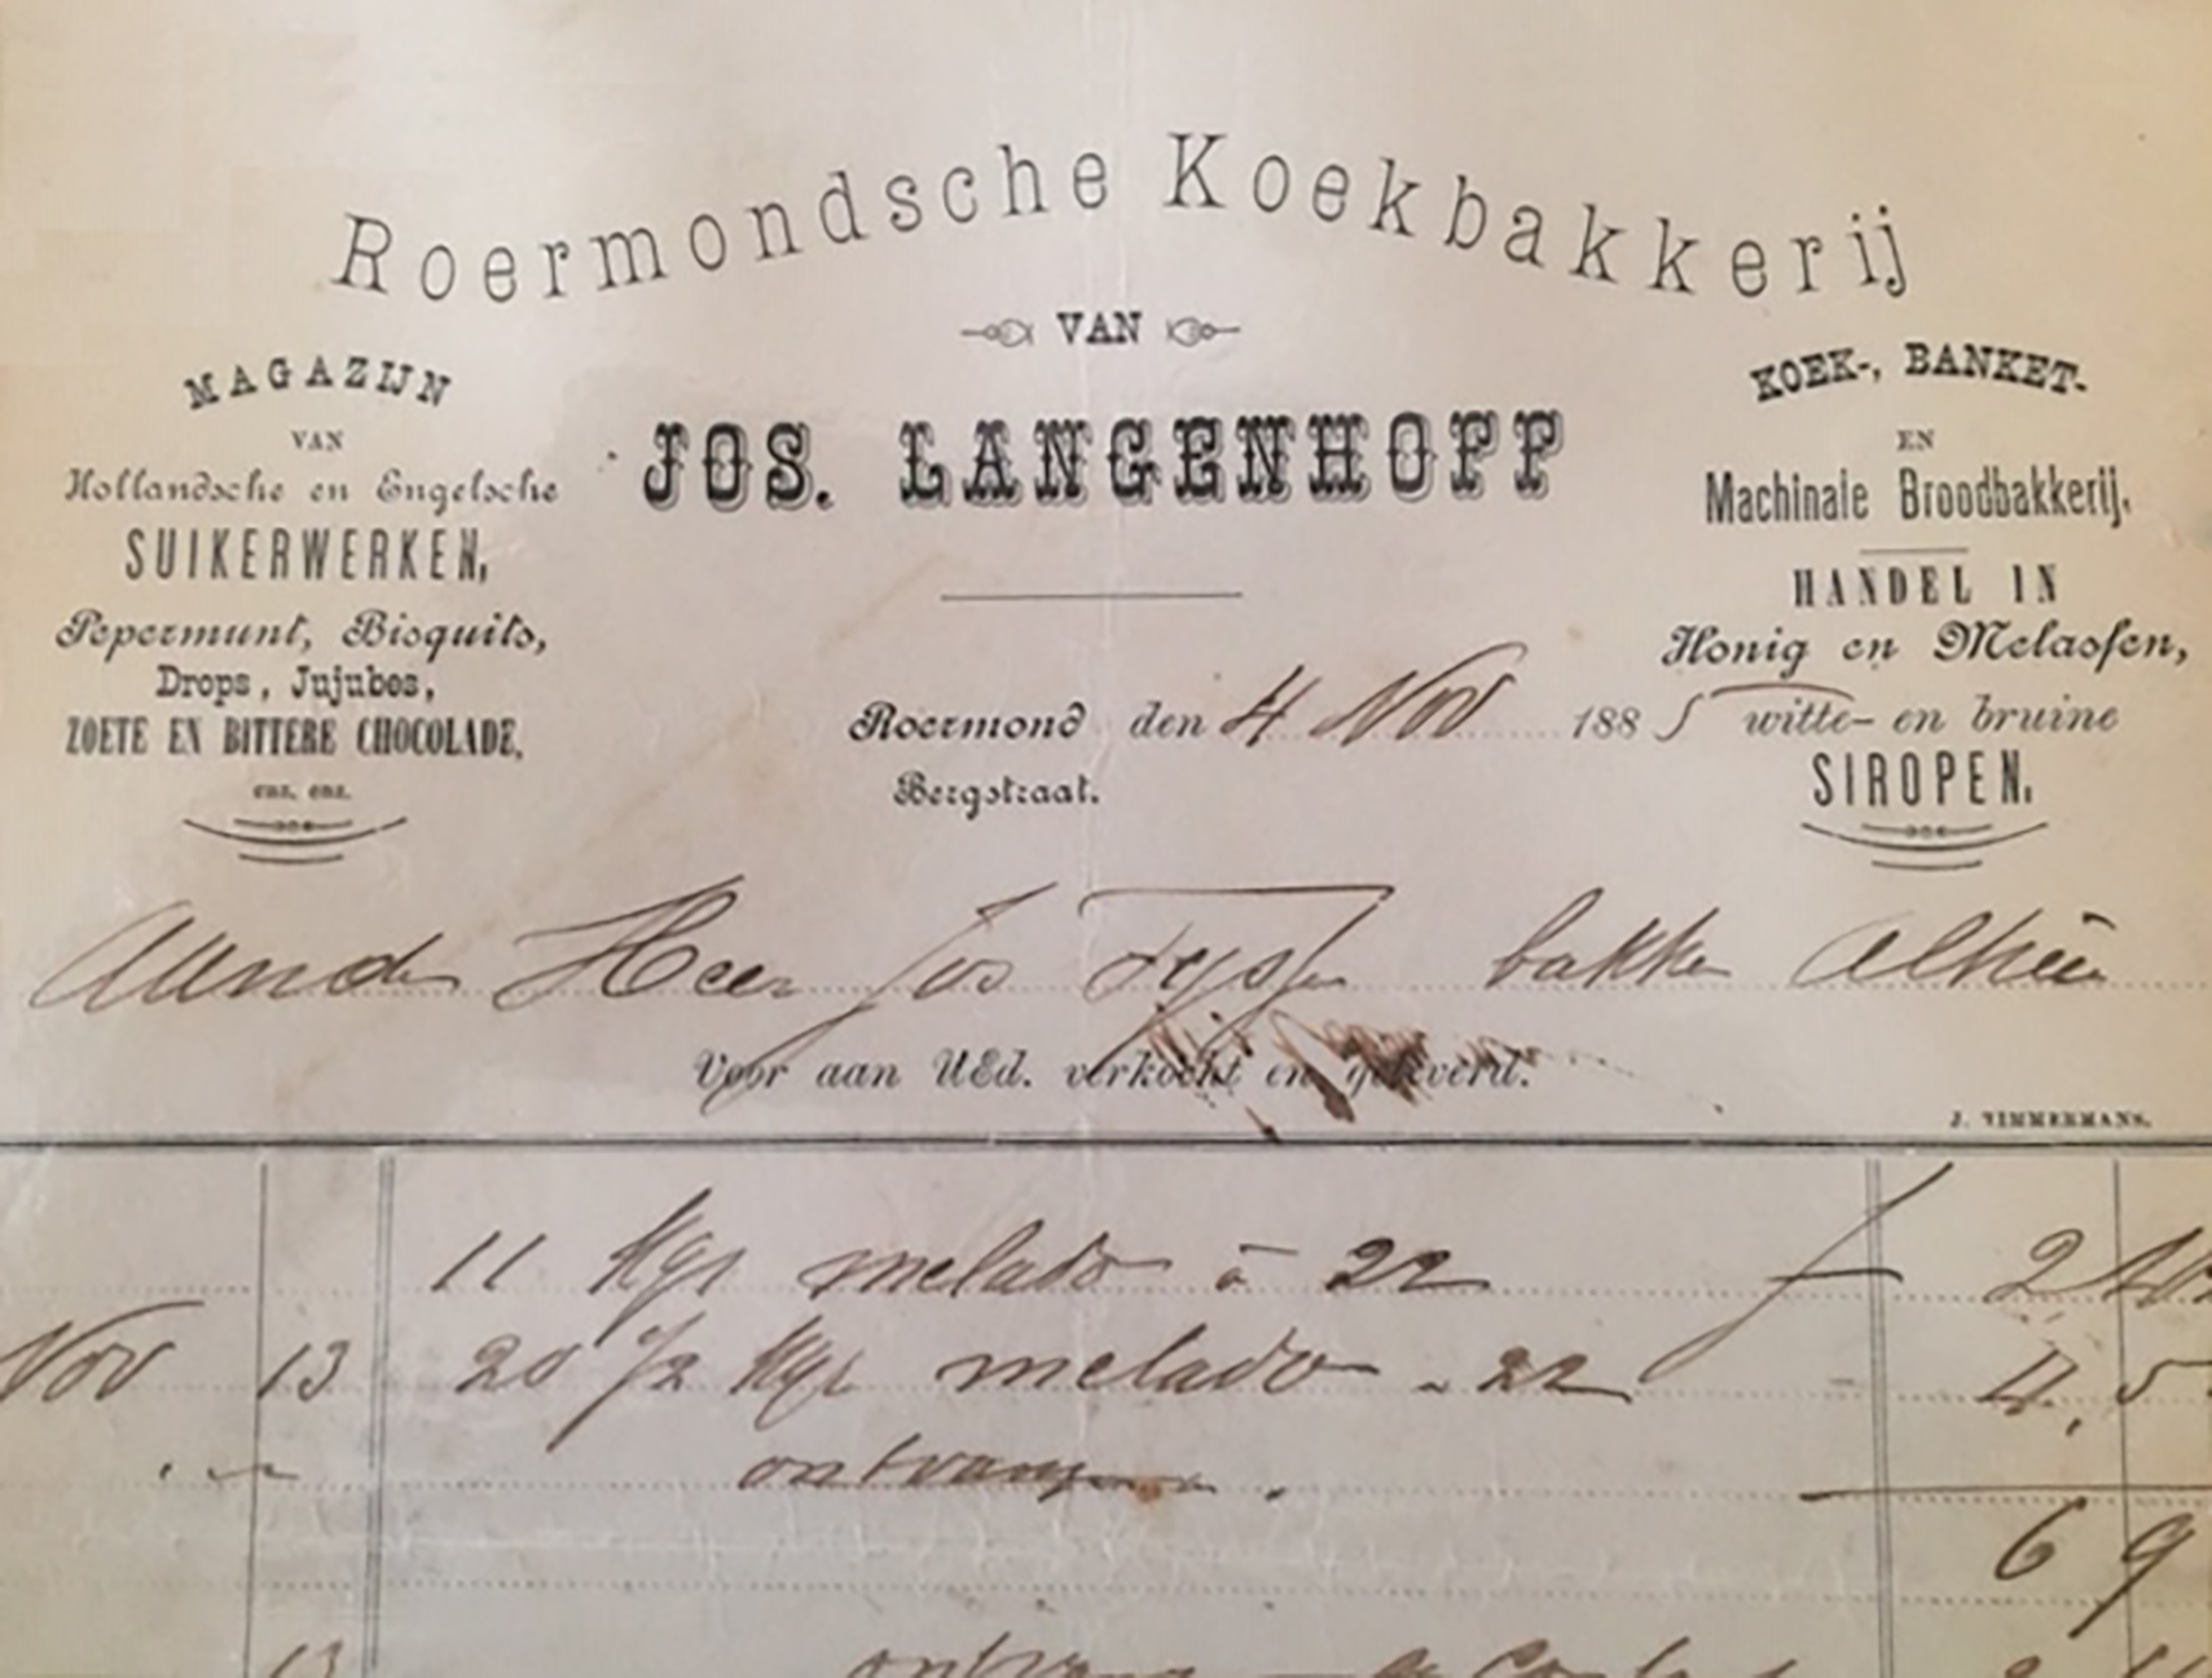 Roermondsche Koekbakkerij
VAN
JOS. LANGENHOFF
MAGAZIJN
VAN
Hollandsche en Engelsche
SUIKERWERKEN,
Pepermunt, Bisquits,
Drops, Jujubes,
ZOETE EN BITTERE CHOCOLADE,
enz. enz.
KOEK-, BANKET-
EN
Machinale Broodbakkerij.
HANDEL IN
Honig en Melassen,
witte- en bruine
SIROPEN.
Roermond den 4 Nov 1885
Bergstraat.
Heer Jos bakker Alhier
Voor aan UEd. verkocht en geleverd.
J. TIMMERMANS.
11 Kgr melado à 22 f 2
Nov 13 20 1/2 Kgr melado " 22 4,5
ontvangen.
6 9
13